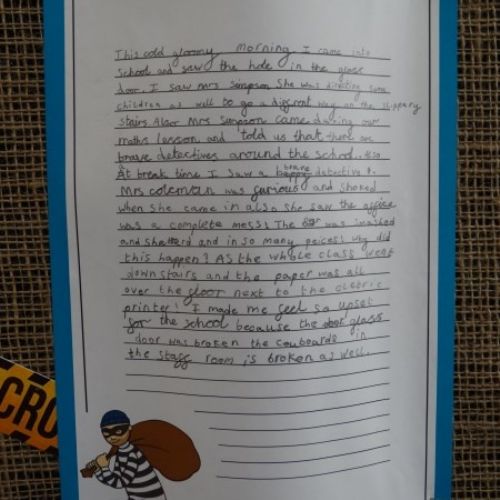 This cold gloomy morning, I came into
school and saw the hole in the glass
door. I saw mrs simpson she was directing some
children as well to go a different way on the slippary
stairs. Also Mrs simpson came during our
maths lesson and told us that there are
brave detectives around the school. also
At break time I saw a brave detective.
Mrs coleman was furious and shoked
when she came in also she saw the office
was a complete mess! The was smashed
and shatterd and in so many peices! why did
this happen? As the whole class went
down stairs and the paper was all
over the floor next to the electric
printer! I made me feel so upset
for the school because the door glass
door was broken the couboards in
the staff room is broken as well.
CRO